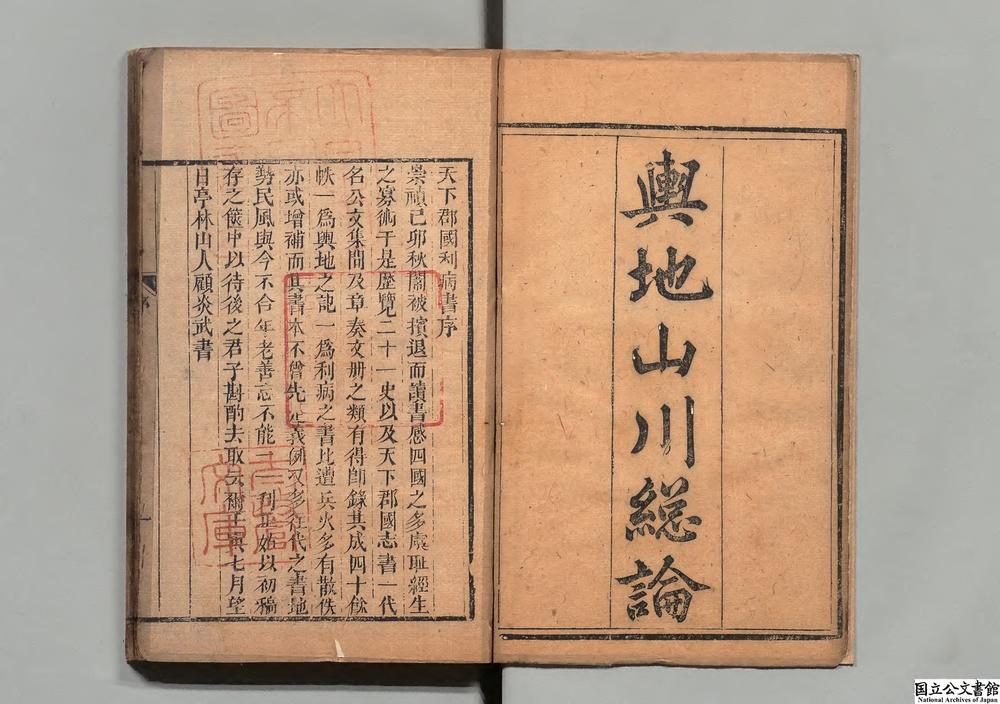 輿地山川緫論
天下郡國利病書序
崇禎己卯秋闈被擯退而讀書感四國之多虞耻經生
之寡術于是歷覽二十一史以及天下郡國志書一代
名公文集間及章奏文册之類有得卽錄其成四十餘
帙一爲輿地之記一爲利病之書比遭兵火多有散佚
亦或增補而其書本不曾先定義例又多往代之書地
勢民風與今不合年老善忘不能一一刊正姑以初稿
存之篋中以待後之君子斟酌去取云爾壬寅七月望
日亭林山人顧炎武書
序
一
文庫
国立公文書館
National Archives of Japan